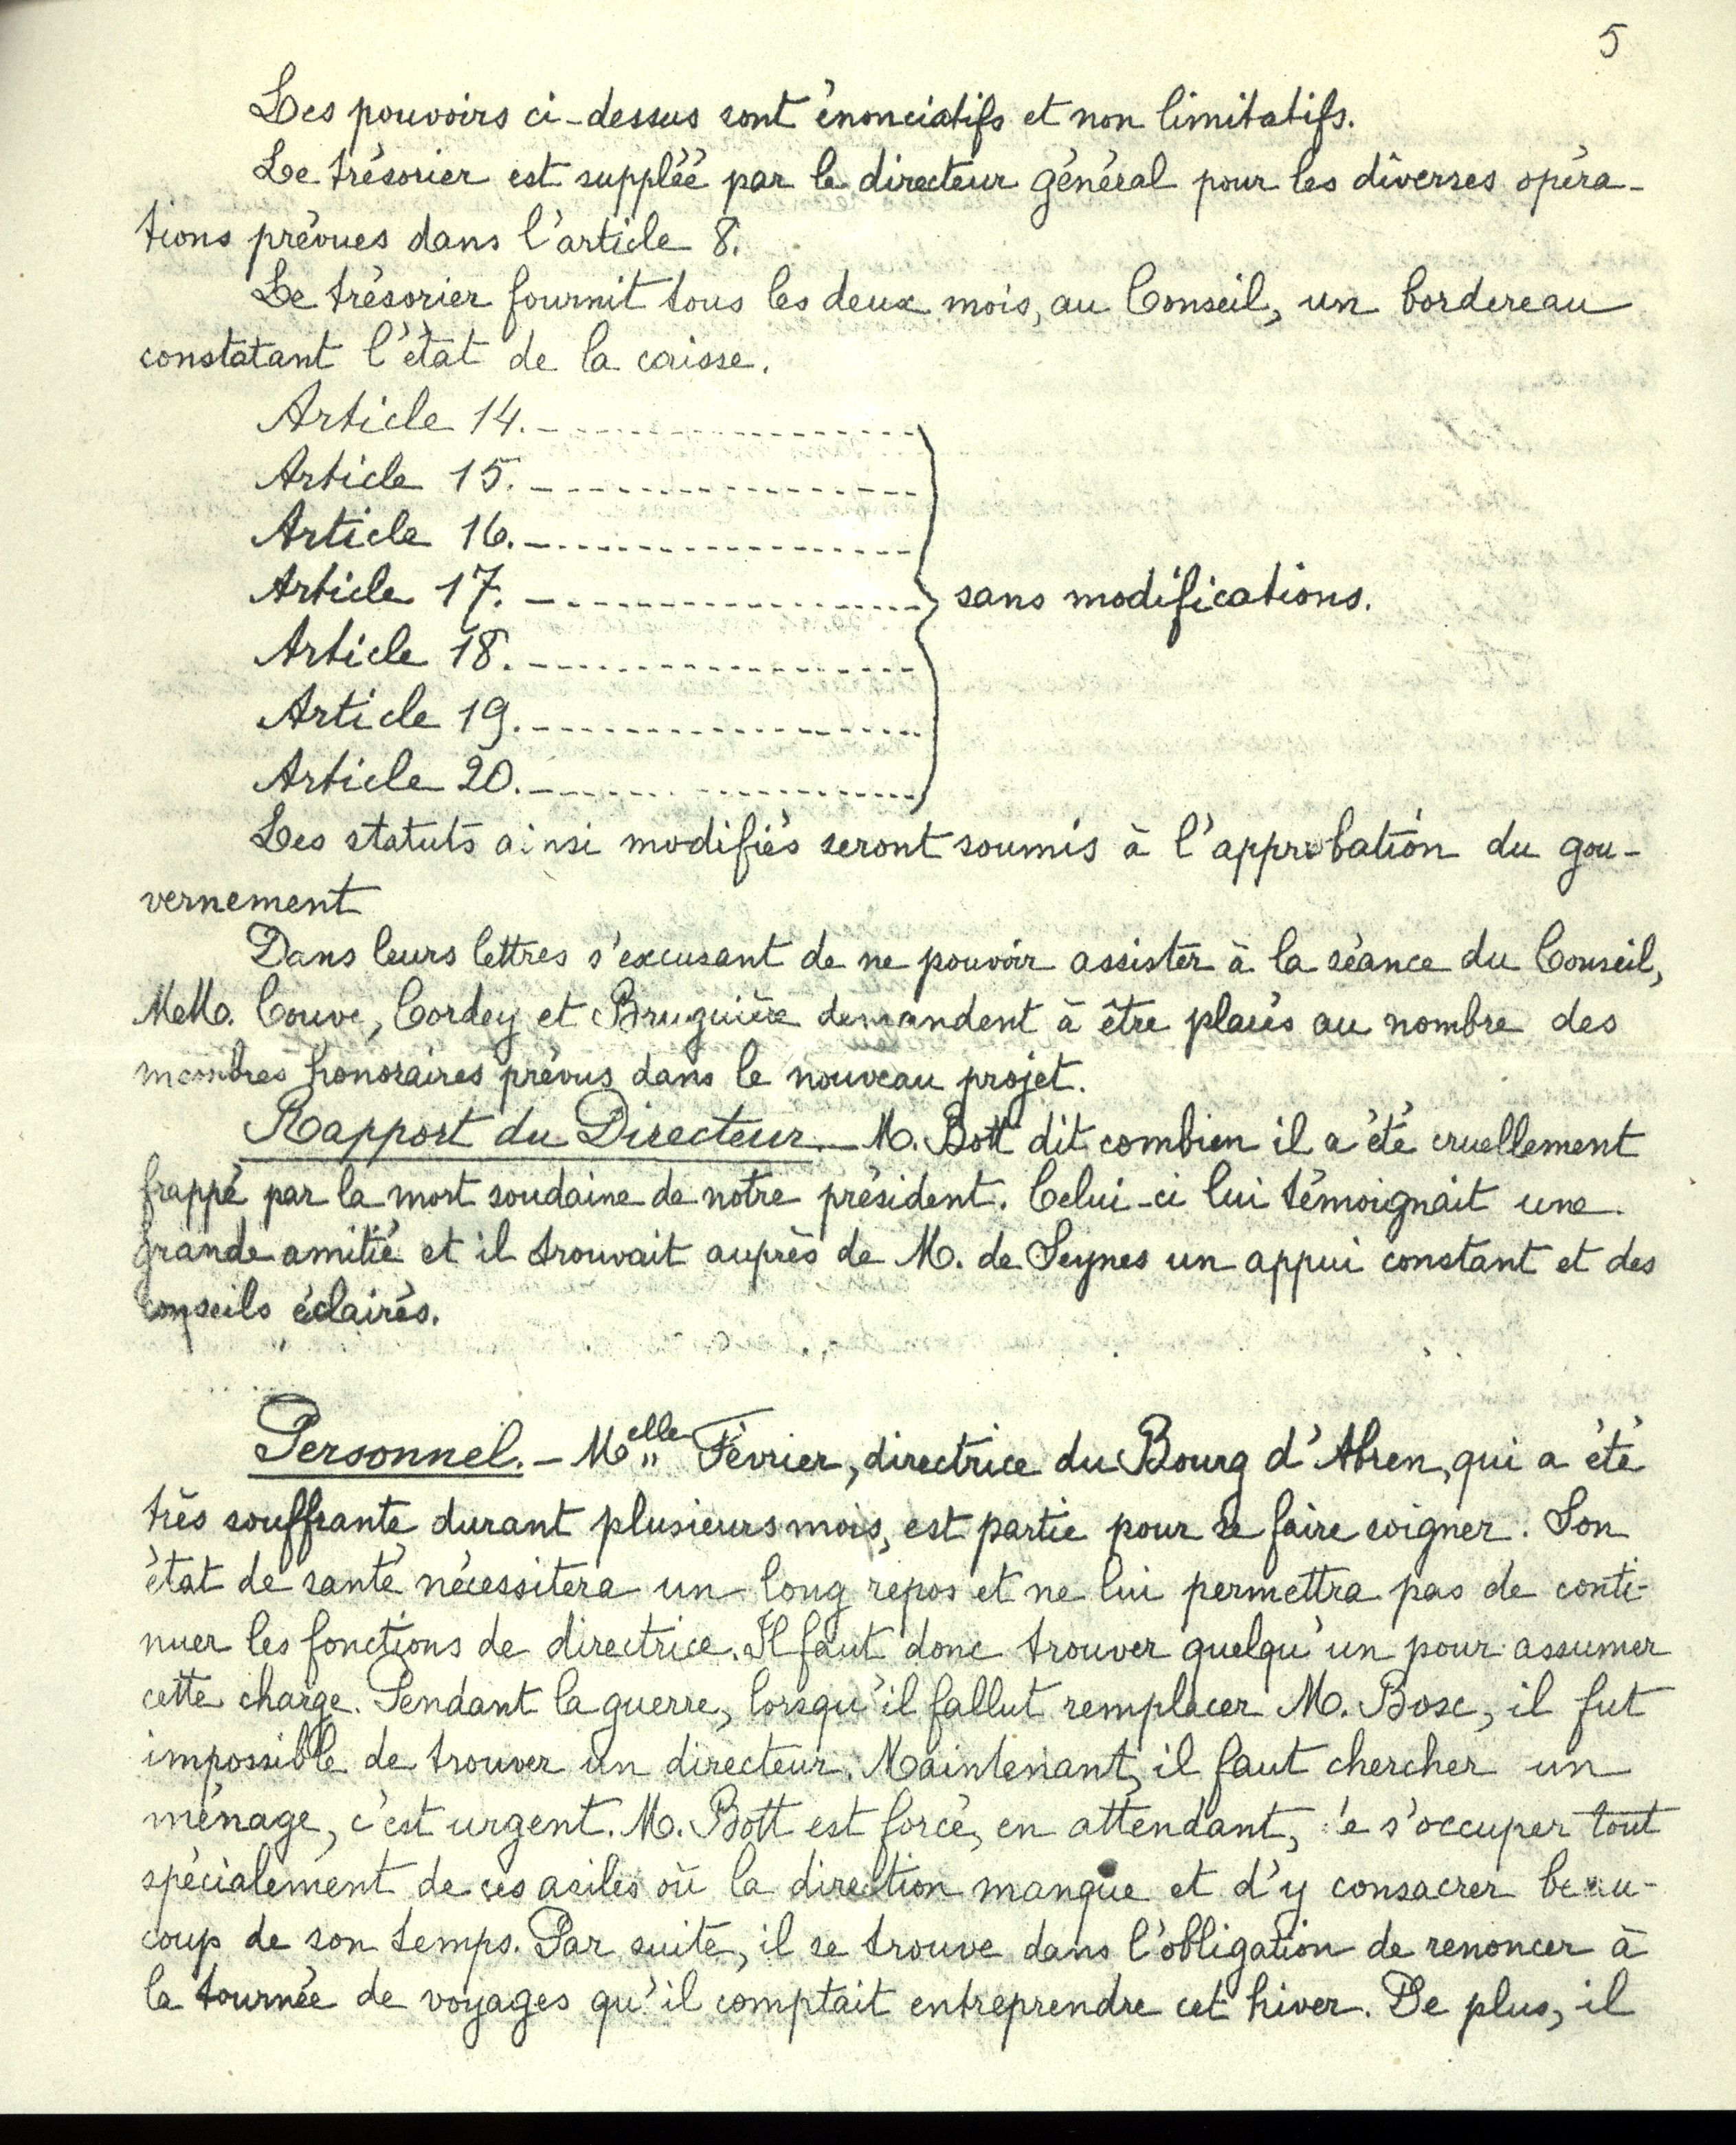 5
Les pouvoirs ci-dessus sont énonciatifs et non limitatifs.
Le trésorier est suppléé par le directeur général pour les diverses opéra-
tions prévues dans l'article 8.
Le trésorier fournit tous les deux mois, au Conseil, un bordereau
constatant l'état de la caisse.
Article 14.
Article 15.
Article 16.
Article 17. sans modifications.
Article 18.
Article 19.
Article 20.
Les statuts ainsi modifiés seront soumis à l'approbation du gou-
vernement
Dans leurs lettres s'excusant de ne pouvoir assister à la séance du Conseil,
MM. Couve, Cordey et Bruguière demandent à être placés au nombre des
membres honoraires prévus dans le nouveau projet.
Rapport du Directeur.- M. Bott dit combien il a été cruellement
frappé par la mort soudaine de notre président. Celui-ci lui témoignait une
grande amitié et il trouvait auprès de M. de Seynes un appui constant et des
conseils éclairés.
Personnel.- Melle Février, directrice du Bourg d'Abren, qui a été
très souffrante durant plusieurs mois, est partie pour se faire soigner. Son
état de santé nécessitera un long repos et ne lui permettra pas de conti-
nuer les fonctions de directrice. Il faut donc trouver quelqu'un pour assumer
cette charge. Pendant la guerre, lorsqu'il fallut remplacer M. Bosc, il fut
impossible de trouver un directeur. Maintenant, il faut chercher un
ménage, c'est urgent. M. Bott est forcé, en attendant, de s'occuper tout
spécialement de ces asiles où la direction manque et d'y consacrer beau-
coup de son temps. Par suite, il se trouve dans l'obligation de renoncer à
la tournée de voyages qu'il comptait entreprendre cet hiver. De plus, il